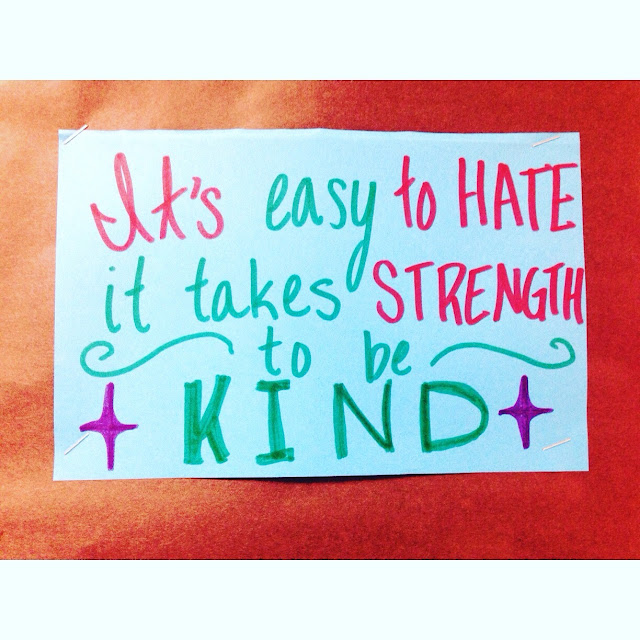 It's easy to HATE
it takes STRENGTH
to be
KIND